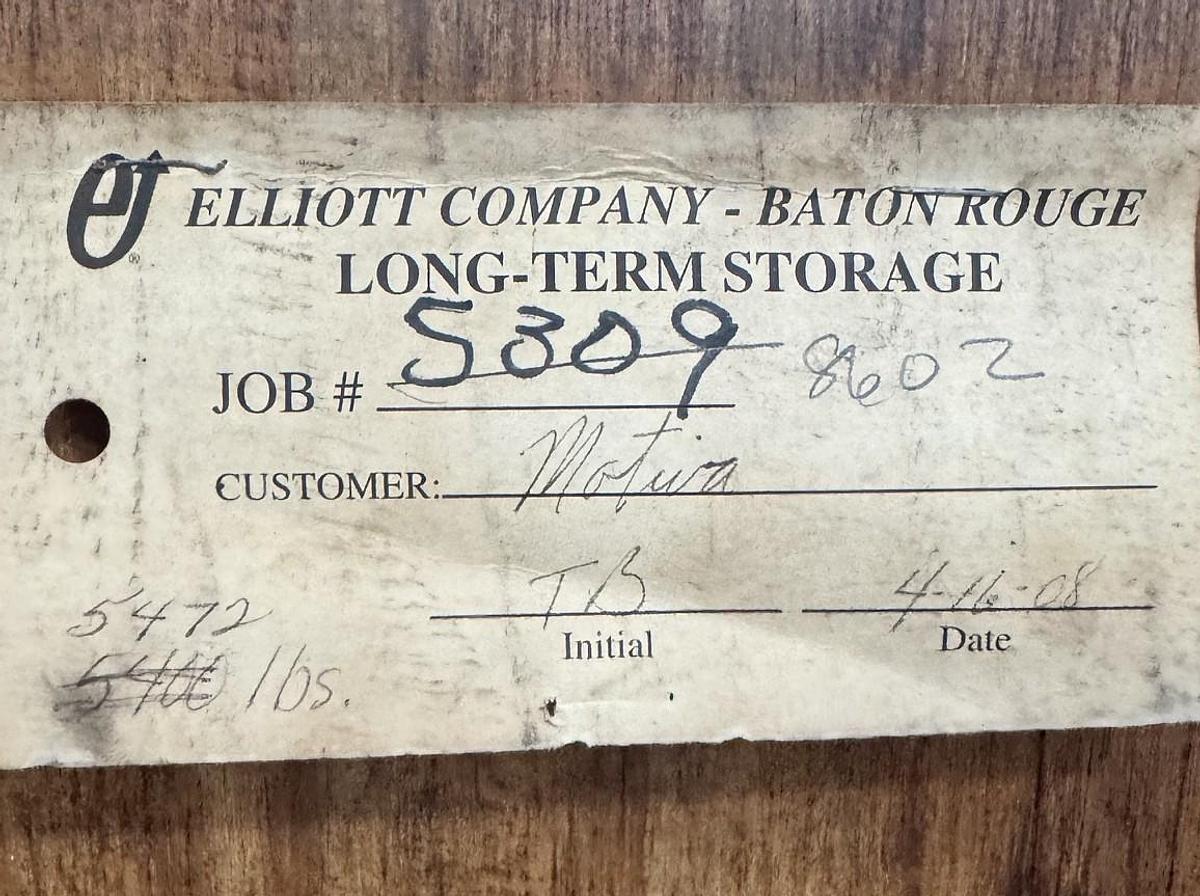 ej ® ELLIOTT COMPANY - BATON ROUGE
LONG-TERM STORAGE
JOB # 5309 8602
CUSTOMER: Motiva
TB 4-16-08
Initial Date
5472
5400 lbs.